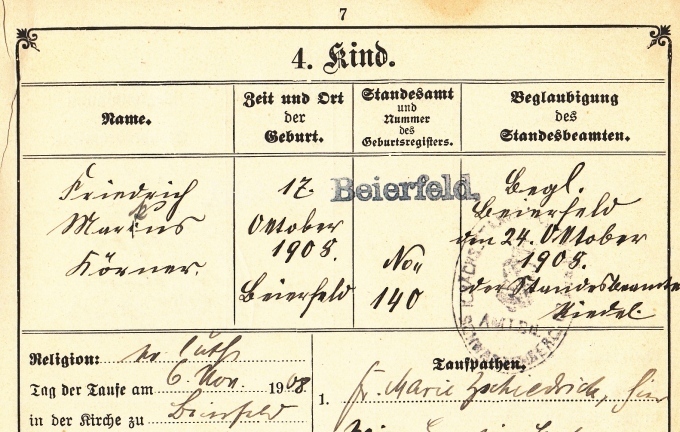 7
4. Kind.
Name.
Zeit und Ort
der
Geburt.
Standesamt
und
Nummer
des
Geburtsregisters.
Beglaubigung
des
Standesbeamten.
Friedrich
Markus
Körner.
17.
Oktober
1908.
Beierfeld
Beierfeld.
No.
140
Begl.
Beierfeld
am 24. Oktober
1908.
der Standesbeamte
Riedel.
Religion: ev. luth.
Tag der Taufe am 6. Nov. 1908
in der Kirche zu Beierfeld
Taufpathen.
1. Fr. Marie